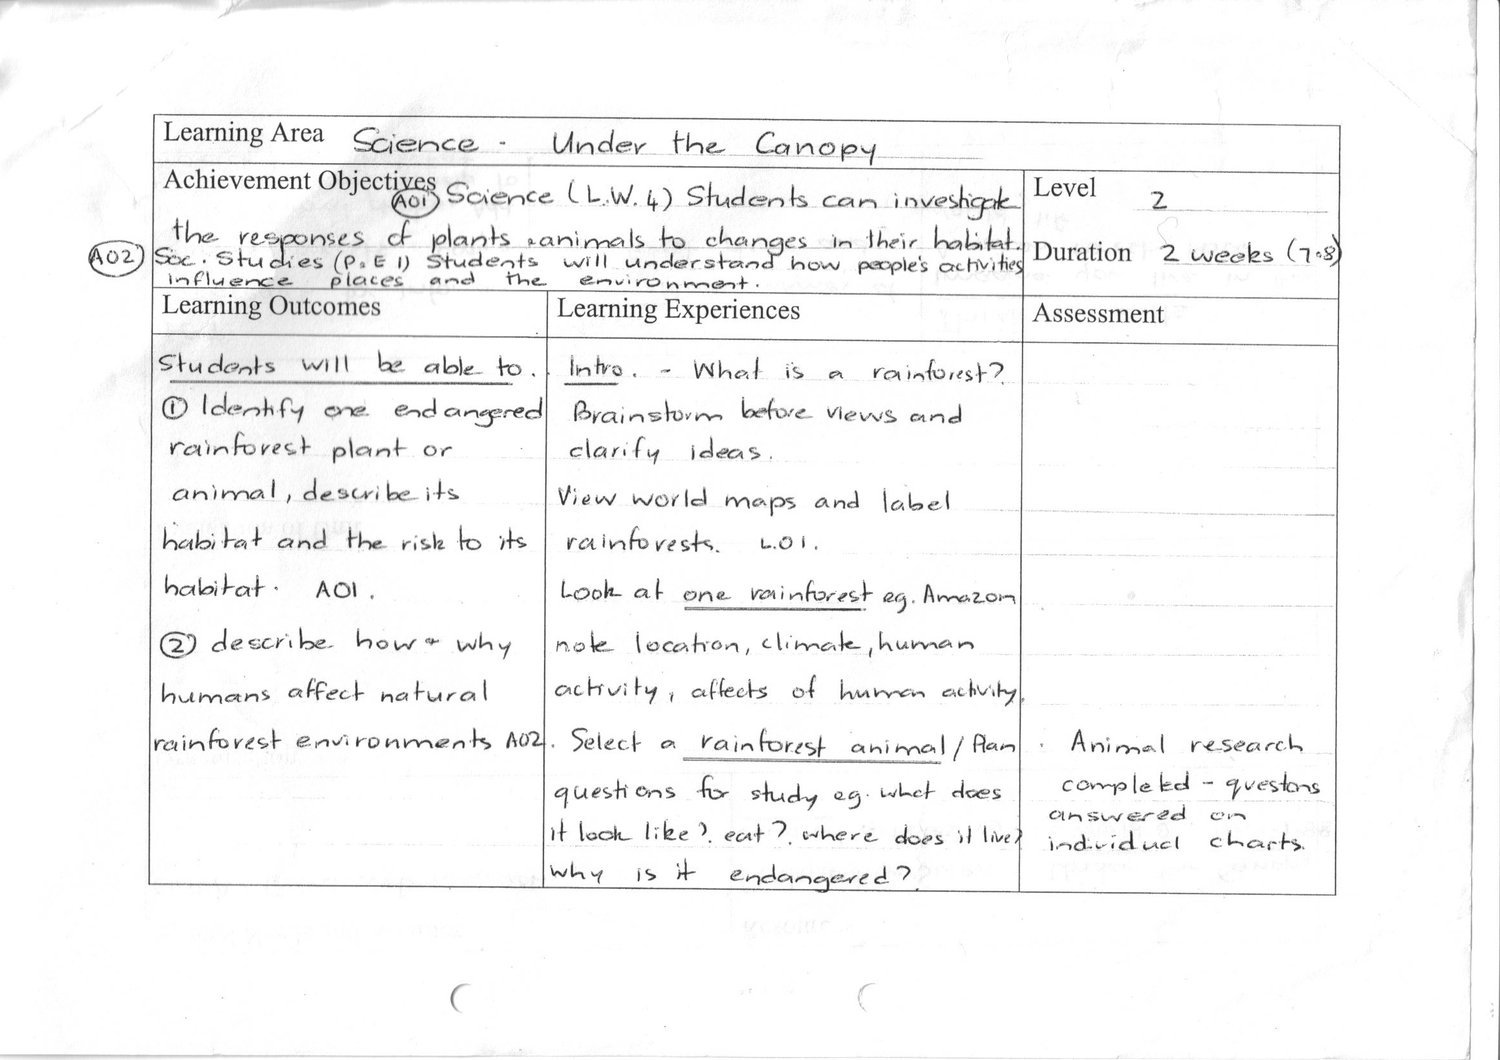 Learning Area Science - Under the Canopy
Achievement Objectives AO1 Science (L.W. 4) Students can investigate
the responses of plants + animals to changes in their habitat.
AO2 Soc. Studies (P.E 1) Students will understand how people's activities
influence places and the environment.
Level 2
Duration 2 weeks (7+8)
Learning Outcomes
Students will be able to.
① Identify one endangered
rainforest plant or
animal, describe its
habitat and the risk to its
habitat. AO1.
② describe how + why
humans affect natural
rainforest environments AO2.
Learning Experiences
Intro. - What is a rainforest?
Brainstorm before views and
clarify ideas.
View world maps and label
rainforests. L.O1.
Look at one rainforest eg. Amazon
note location, climate, human
activity, affects of human activity.
Select a rainforest animal / Plan
questions for study eg. what does
it look like?. eat?. where does it live?
why is it endangered?
Assessment
. Animal research
completed - questons
answered on
individual charts.